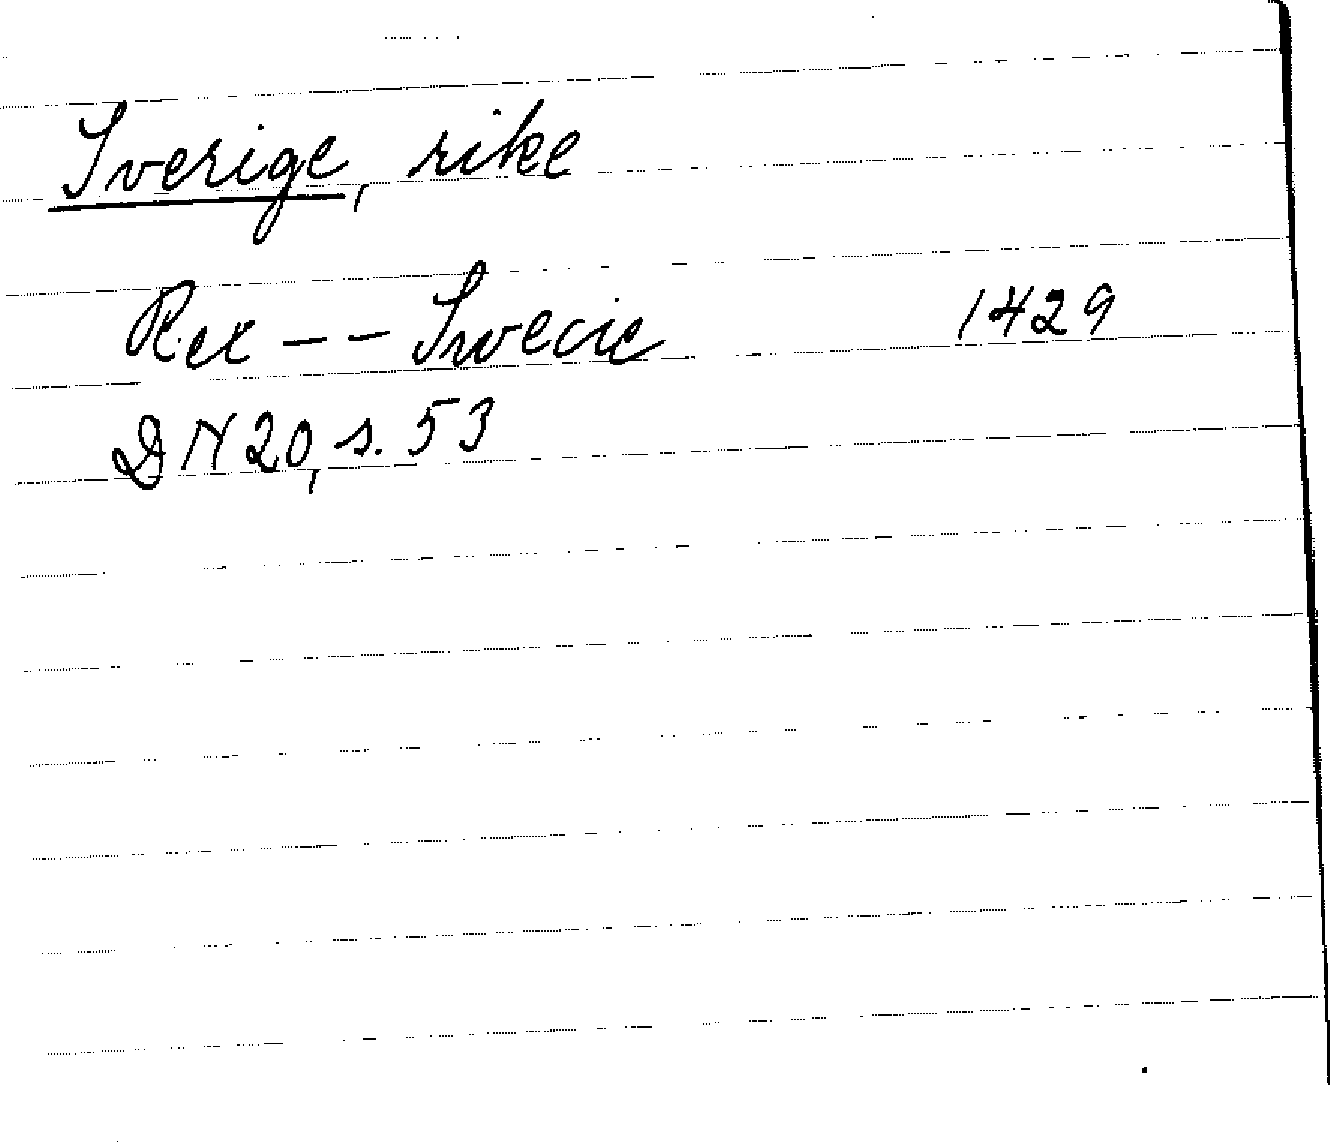 Sverige, rike
Rex -- Swecie 1429
DN 20, s. 53